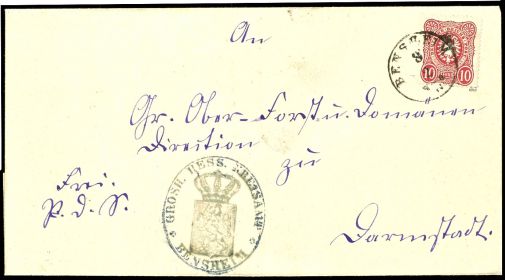 An
BENSHEIM
8
10
10 10
Gr. Ober-Forst u. Domanen
Direction
zu
Frei.
P. d. S.
GROSH. HESS. KREISAMT
BENSHEIM
Darmstadt.